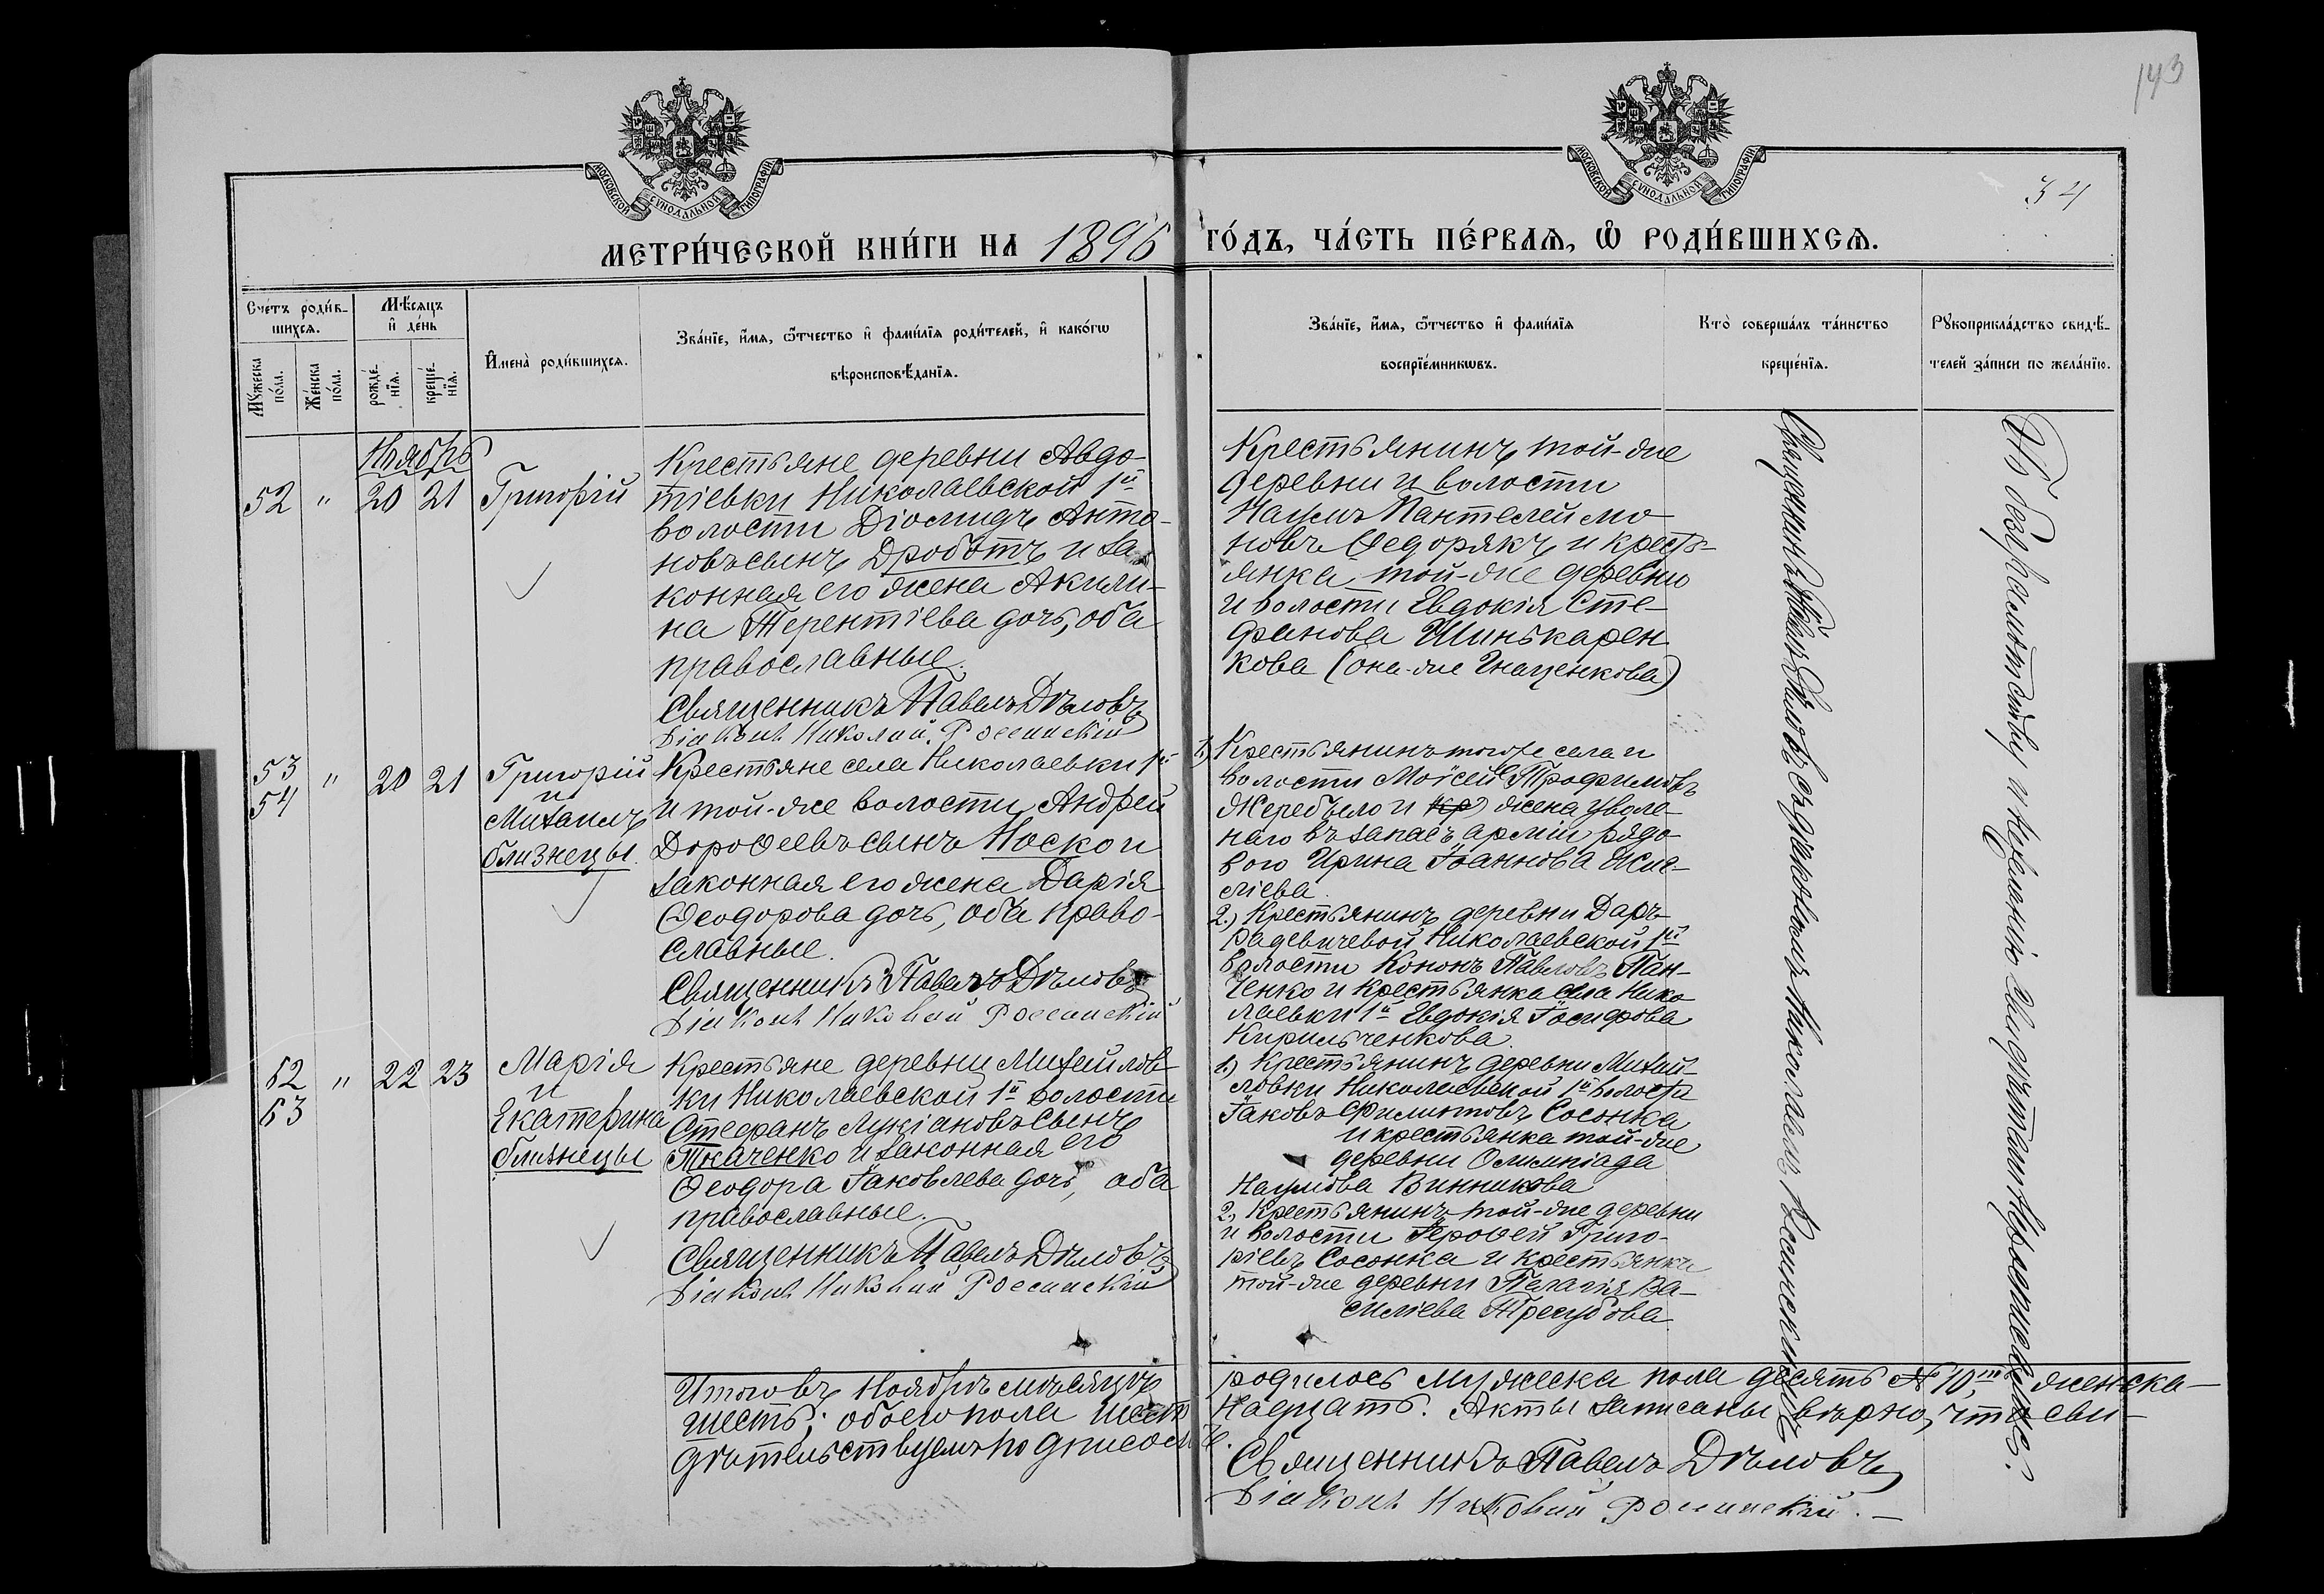 143
34
МОСКОВСКОЙ СѴНОДАЛЬНОЙ ТИПОГРАФІИ
МОСКОВСКОЙ СѴНОДАЛЬНОЙ ТИПОГРАФІИ
МЕТРИ́ЧЕСКОЙ КНИ́ГИ НА 1896 ГО́ДЪ, ЧА́СТЬ ПЕ́РВАѦ, Ѡ҆ РОДИ́ВШИХСѦ.
Сче́тъ роди́в-
шихсѧ.
Мꙋ́жеска по́ла.
Же́нска по́ла.
Мѣ́сѧцъ
и҆ де́нь
рожде́-
нїѧ.
креще́-
нїѧ.
И҆мена̀ роди́вшихсѧ.
Зва́нїе, и҆́мѧ, ѻ҆́тчество и҆ фами́лїѧ роди́телей, и҆ како́гѡ
вѣроисповѣ́данїѧ.
Зва́нїе, и҆́мѧ, ѻ҆́тчество и҆ фами́лїѧ
воспрїе́мникѡвъ.
Кто̀ соверша́лъ та́инство
креще́нїѧ.
Рꙋкоприкла́дство свидѣ́-
телей за́писи по жела́нїю.
Ноябрь
52 " 20 21 Григорій
Крестьяне деревни Авдо-
тіевки Николаевской 1й
волости Діомидъ Анто-
новъ сынъ Дроботъ и за-
конная его жена Акили-
на Терентіева дочь, оба
православные.
Священникъ Павелъ Дѣловъ
Діаконъ Николай Россинскій
Крестьянинъ той-же
деревни и волости
Наумъ Пантелеймо-
новъ Федорякъ и кресть-
янка той-же деревни
и волости Евдокія Сте-
фанова Шинькарен
кова (она-же Игнащенкова)
53
54 " 20 21
Григорій
и
Михаилъ
близнецы.
Крестьяне села Николаевки 1й
и той-же волости Андрей
Дорофеевъ сынъ Носко и
законная его жена Дарія
Феодорова дочь, оба право-
славные.
Священникъ Павелъ Дѣловъ
Діаконъ Николай Россинскій
1.) Крестьянинъ того-же села и
волости Моисей Трофимовъ
Жеребыло и кр жена уволе-
наго въ запасъ арміи рядо-
вого Ирина Іоаннова
2.) Крестьянинъ деревни Дарь-
радевичевой Николаевской 1й
волости Кононъ Павловъ Пан-
ченко и крестьянка села Нико
лаевки 1й Евдокія Іосифова
Кирильченкова.
62
63 " 22 23
Марія
и
Екатерина
близнецы
Крестьяне деревни Михайлов-
ки Николаевской 1й волости
Стефанъ Лукіановъ сынъ
Ткаченко и законная его
Феодора Іаковлева дочь, оба
православные.
Священникъ Павелъ Дѣловъ
Діаконъ Николай Россинскій
1.) Крестьянинъ деревни Михай-
ловки Николаевской 1й волости
Іаковъ Филиповъ Сосонка
и крестьянка той-же
деревни Олимпіада
Наумова Винникова
2.) Крестьянинъ той-же деревни
и волости Іерофей Григо-
ріевъ Сосонка и крестьянка
той-же деревни Пелагія Ва-
силіева Трегубова
Священникъ Павелъ Дѣловъ съ діакономъ Николаемъ Россинскимъ
По безграмотству и нежеланію
Итого въ Ноябрѣ мѣсяцѣ родилось мужеска пола десять № 10, женска-
шесть; обоего пола шест надцать. Акты записаны вѣрно, что сви-
дѣтельствуемъ подписомъ.
Священникъ Павелъ Дѣловъ
Діаконъ Николай Россинскій.